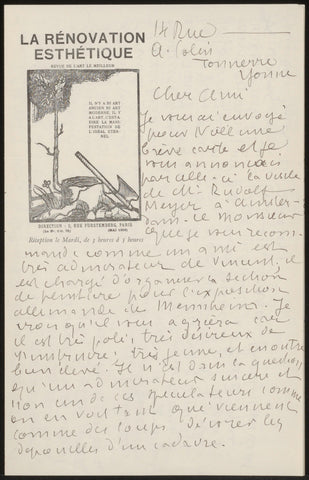 14 Rue
LA RÉNOVATION
ESTHÉTIQUE
REVUE DE L'ART LE MEILLEUR
IL N'Y A NI ART
ANCIEN NI ART
MODERNE, IL Y
A L'ART, C'EST-À-
DIRE LA MANI-
FESTATION DE
L'IDÉAL ÉTER-
NEL.
DIRECTION : 2, RUE FURSTEMBERG, PARIS
(MAI 1905)
Réception le Mardi, de 3 heures à 5 heures
Tonnerre
Yonne
Cher Ami
Je vous ai envoyé
pour Noël une
brève carte et je
vous annonçais
par celle-ci la visite
de Mr Rudolf
Meyer à Amster-
dam. Ce monsieur
que je vous recom-
mande comme un ami est
très admirateur de Vincent, il
est chargé d'organiser la section
de peinture pour l'exposition
allemande de Mannheim. Je
crois qu'il vous agréera car
il est très poli, très désireux de
s'instruire, très jeune, et en outre
bien élevé. Je n'est dans la question
qu'un admirateur sincère et
non un de ces spéculateurs comme
on en voit tant qui viennent
comme des loups dévorer les
dépouilles d'un cadavre.